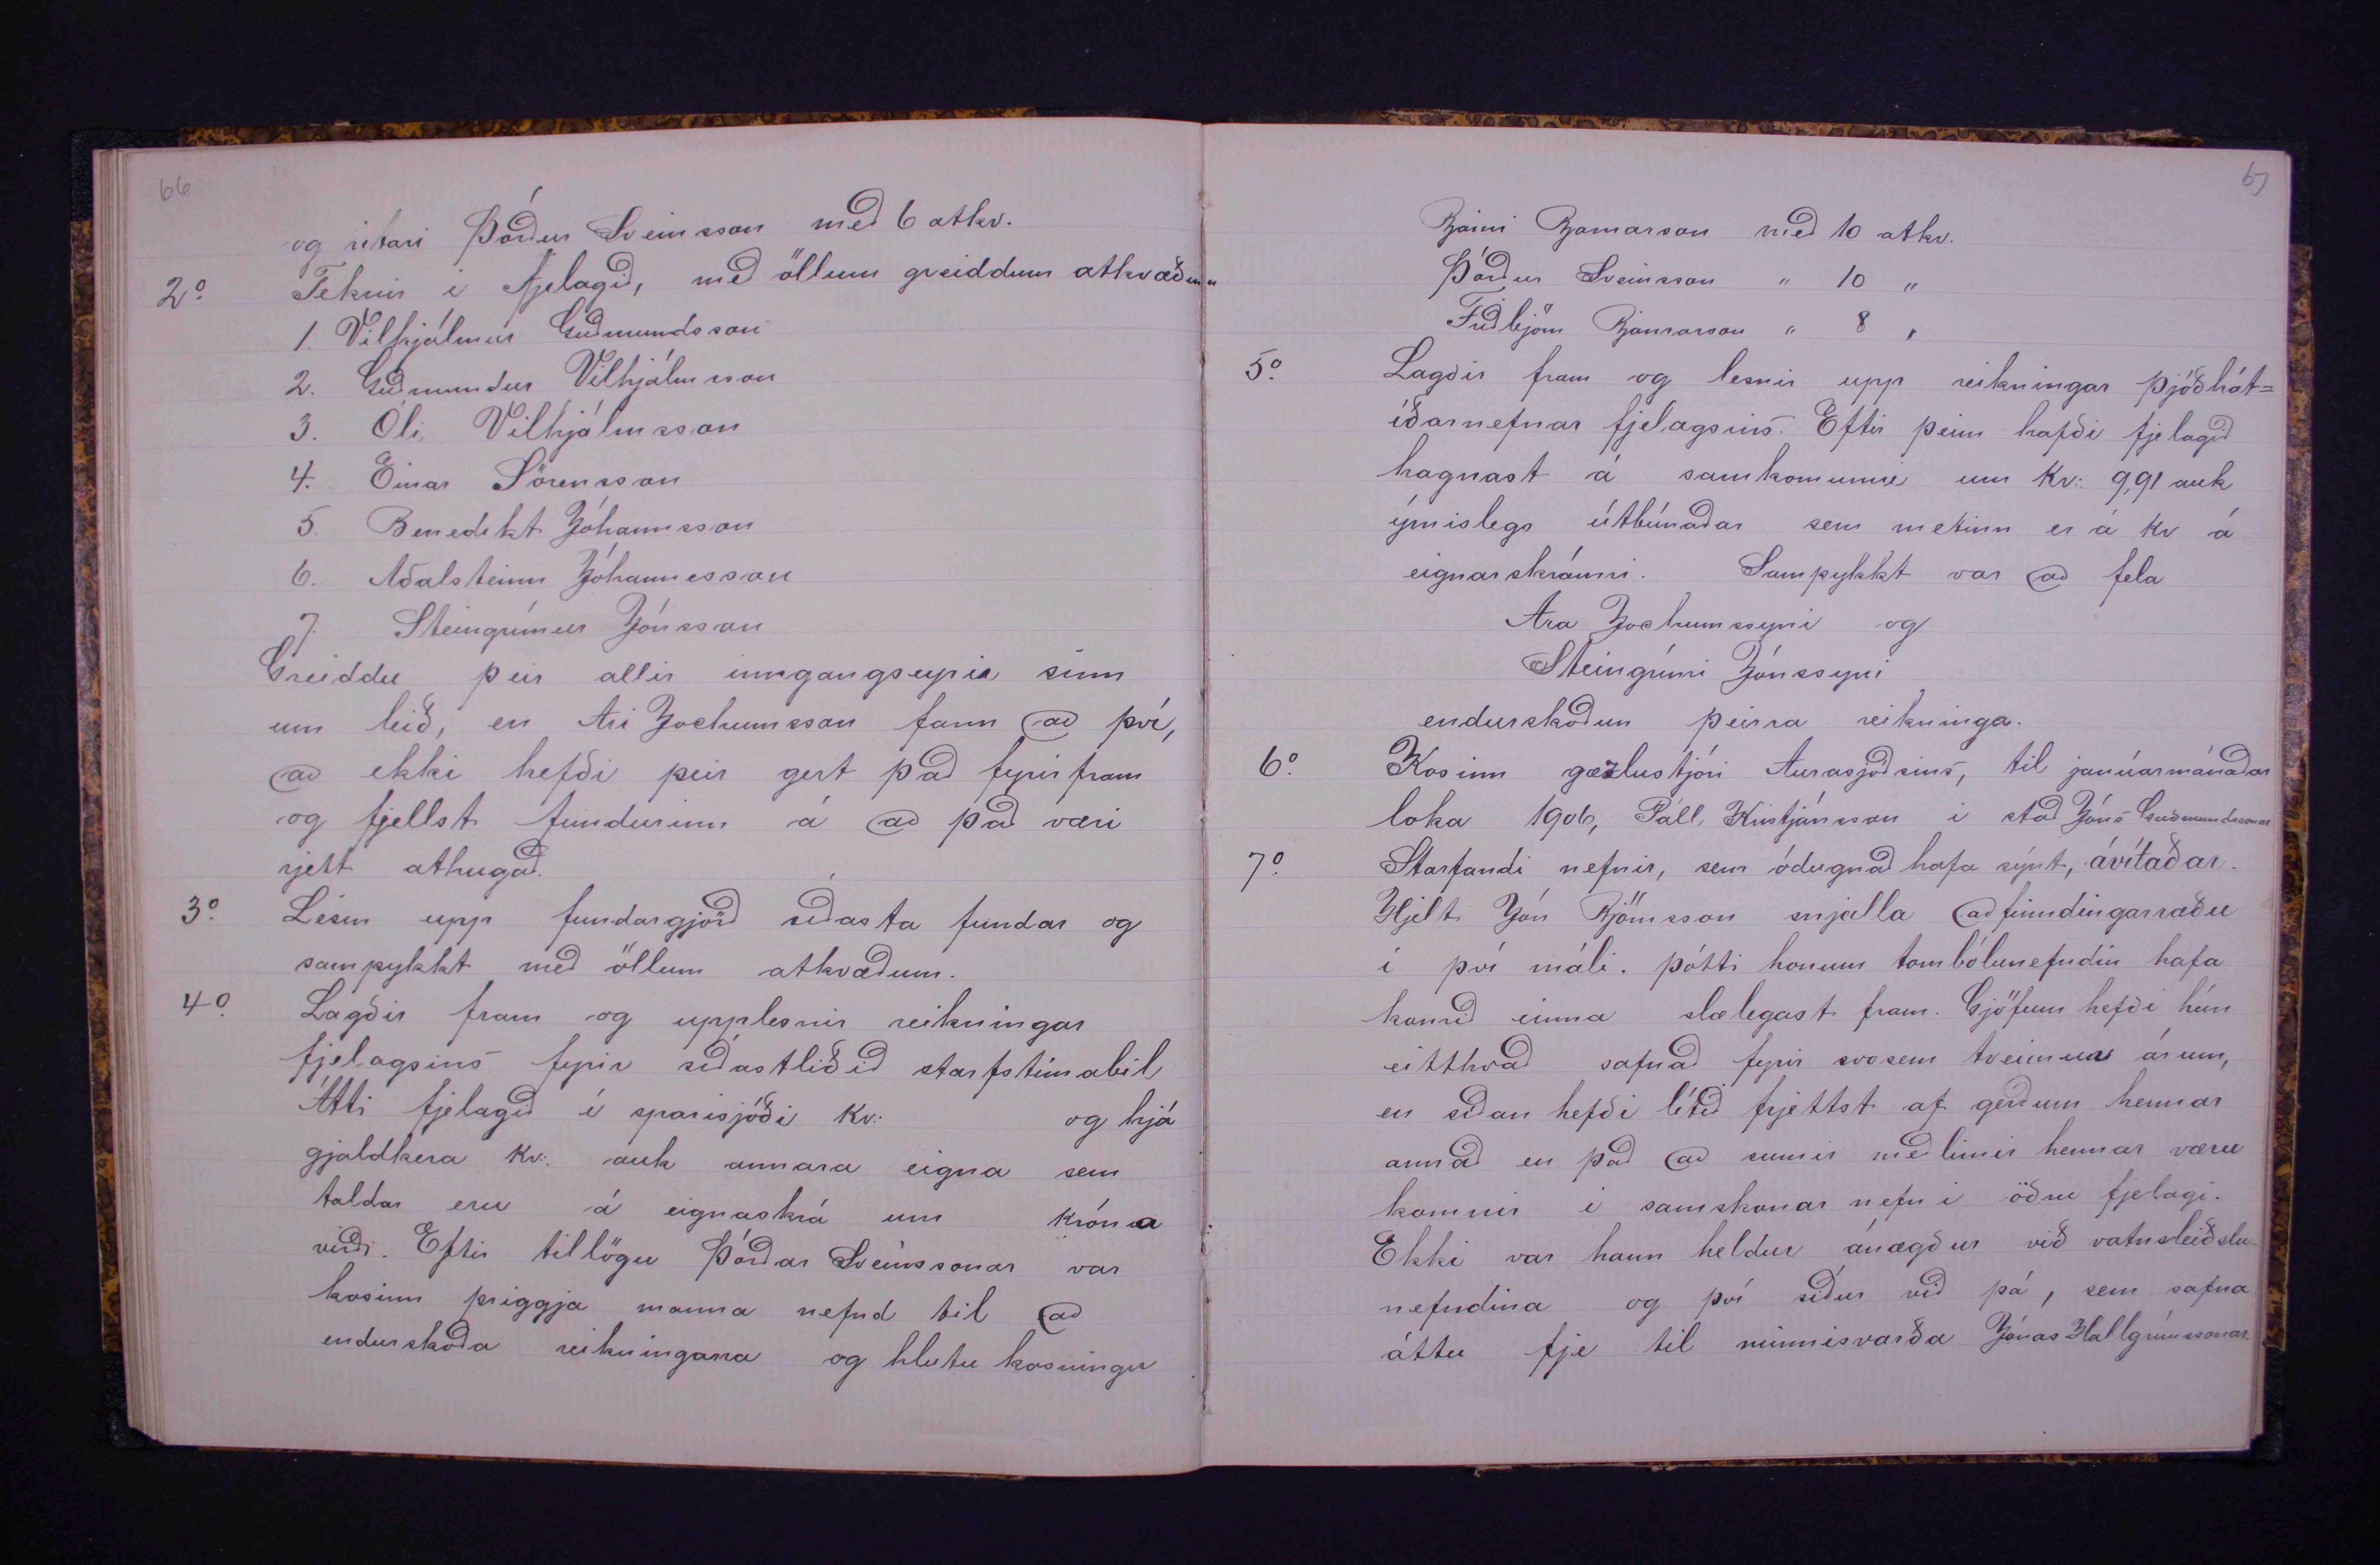 66
og ritari Þórður Sveinsson með 6 atkv.
2º Teknir í fjelagið, með öllum greiddum atkvæðum
1. Vilhjálmur Guðmundsson
2. Guðmundur Vilhjálmsson
3. Óli Vilhjálmsson
4. Einar Sörensson
5. Benedikt Jóhannsson
6. Aðalsteinn Jóhannesson
7. Steingrímur Jónsson
Greiddu þeir allir inngangseyrir sinn
um leið, en Ari Jochumsson fann að því,
að ekki hefði þeir gert það fyrirfram
og fjellst fundurinn á að það væri
rjett athugað.
3º. Lesin upp fundargjörð síðasta fundar og
samþykkt með öllum atkvæðum.
4º. Lagðir fram og upplesnir reikningar
fjelagsins fyrir síðastliðið starfstímabil
Átti fjelagið í sparisjóði Kr: og hjá
gjaldkera Kr: auk annara eigna sem
taldar eru á eignaskrá um króna
virði. Eftir tillögu Þórðar Sveinssonar var
kosinn þriggja manna nefnd til að
endurskoða reikningana og hlutu kosningu
67
Bjarni Bjarnarson með 10 atkv.
Þórður Sveinsson " 10 "
Friðbjörn Bjarnarson " 8 "
5º. Lagðir fram og lesnir upp reikningar þjóðhát=
íðarnefnar fjelagsins. Eftir þeim hafði fjelagið
hagnast á samkomunni um Kr: 9,91 auk
ýmislegs útbúnaðar sem metinn er á Kr á
eignarskránni. Samþykkt var að fela
Ara Jochumssyni og
Steingrími Jónssyni
endurskoðun þeirra reikninga.
6º. Kosinn gæzlustjóri Aurasjóðsins, til janúarmánaðar
loka 1906, Páll Kristjánsson í stað Jóns Guðmundssonar
7º. Starfandi nefnir, sem ódugnað hafa sýnt, ávítaðar.
Hjelt Jón Björnsson snjalla aðfinndingarræðu
í því máli. Þótti honum tombólunefndin hafa
komið einna slælegast fram. Gjöfum hefði hún
eitthvað safnað fyrir svosem tveimur árum,
en síðan hefði lítið frjettst af gerðum hennar
annað en það að sumir meðlimir hennar væru
komnir í samskonar nefni öðru fjelagi.
Ekki var hann heldur ánægður við vatnsleiðslu-
nefndina og því síður við þá, sem safna
áttu fje til minnisvarða Jónas Hallgrímssonar